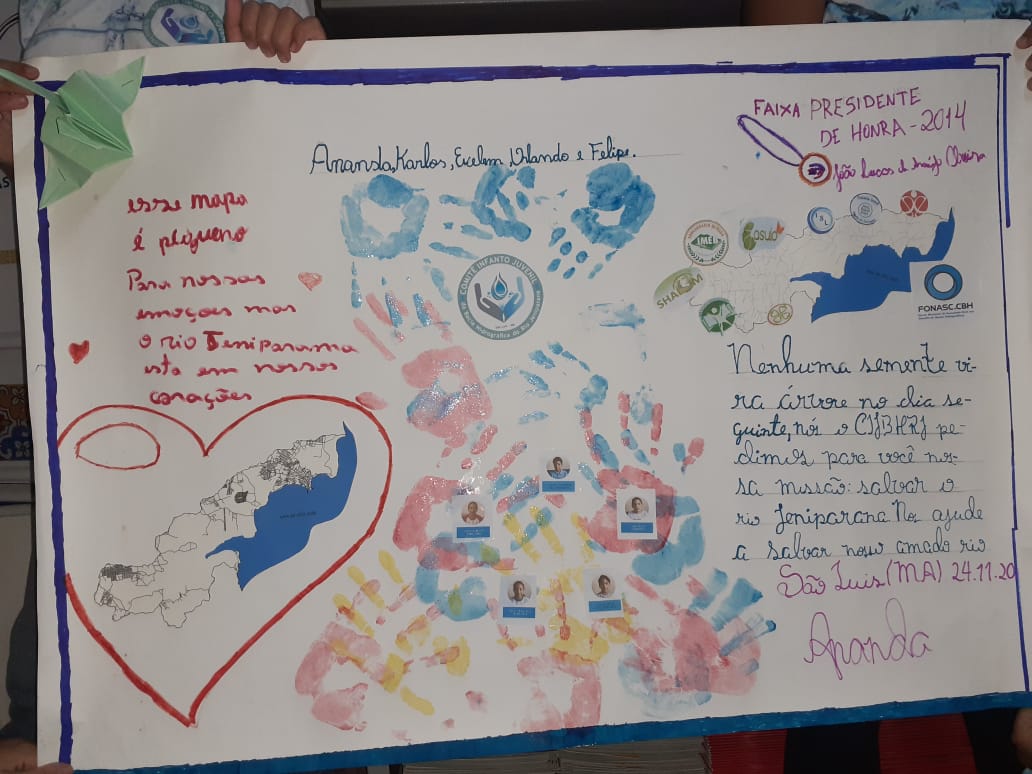 Ananda, Karlos, Evelem, Orlando e Felipe.
FAIXA PRESIDENTE
DE HONRA - 2014
João Lucas de Araújo
esse mapa
é piqueno
Para nossas
emoções mas
o rio Jeniparama
ista em nossos
corações
COMITÊ INFANTO JUVENIL
da Bacia Hidrográfica do Rio Jeniparana
IMEB
SHALOM
FONASC.CBH
Nenhuma semente vi-
ra árvore no dia se-
guinte, nós o CIJBHRJ pe-
dimos para você nos-
sa missão: salvar o
rio Jeniparana Nos ajude
a salvar nosso amado rio
São Luis (MA) 24.11.20
Ananda